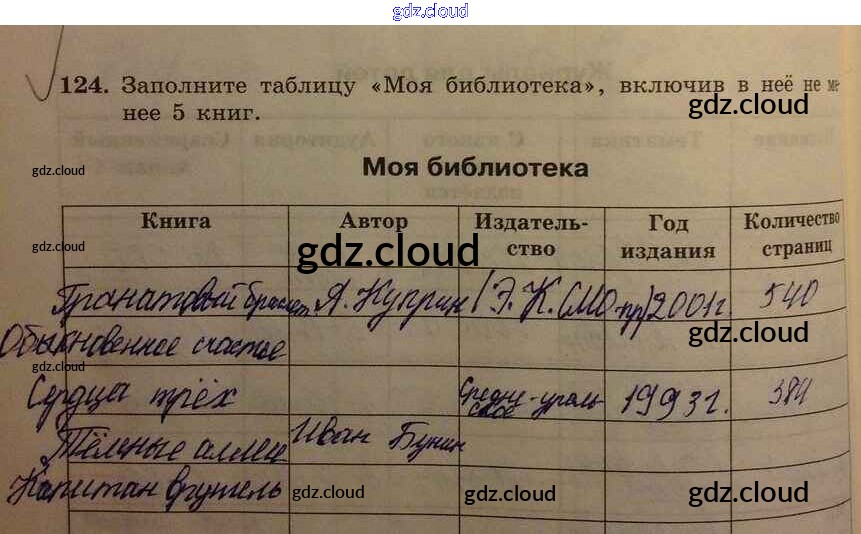 gdz.cloud
124. Заполните таблицу «Моя библиотека», включив в неё не ме
нее 5 книг.
gdz.cloud
gdz.cloud
Моя библиотека
Книга Автор Издатель-ство Год издания Количество страниц
gdz.cloud
gdz.cloud
Гранатовый браслет А. Куприн (Э.К.СМО-пр) 2001г. 540
Обыкновенное счастье
gdz.cloud
gdz.cloud
Сердца трёх Средне-ураль ское 1993г. 384
gdz.cloud
Тёмные аллеи Иван Бунин
Капитан врунгель
gdz.cloud
gdz.cloud
gdz.cloud